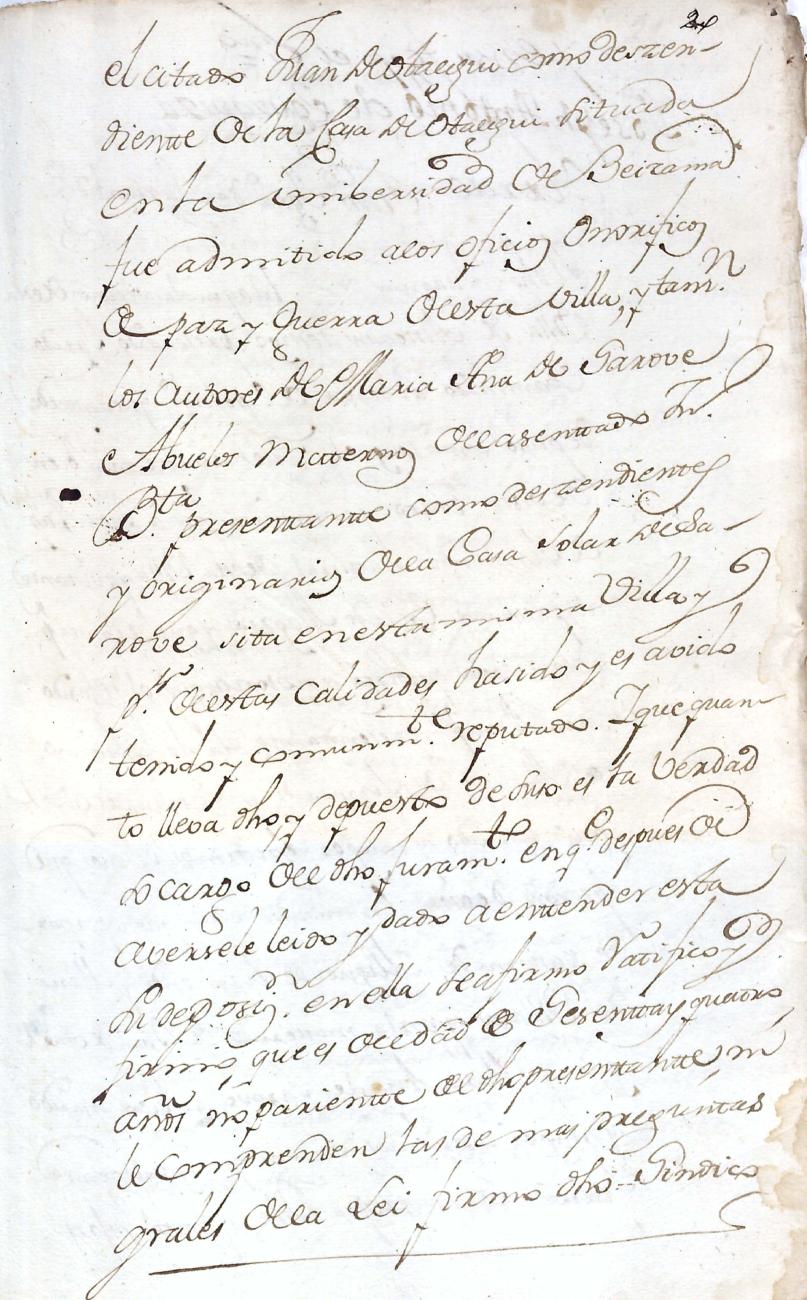 el citado Juan de Otaegui como deszen-
diente de la Casa de Otaegui situada
en la Universidad de Beizama
fue admitido a los oficios Onorificos
de paz y Guerra de esta villa, y tamn.
los autores de Maria Ana de Garove
e Abuelos Maternos de la sentado Dn.
Bta. presenttantte como deszendientes
y originarios de la Casa Solar de Ga-
rove sita en esta misma Villa y
pr. de estas Calidades ha sido y es avido
tenido y comunmte. reputado. I que quan-
to lleva dho, y depuesto de suso es la Verdad
so cargo del dho Juramto. en qe. despues de
aversele leido y dado a entender esta
su deposizn. en ella se afirmo Ratifico y
firmo, que es de edad de Sesenta y quatro
años no pariente de dho presenttantte, ni
le Comprenden las demas preguntas
grales de la Lei firmo dho Sindico